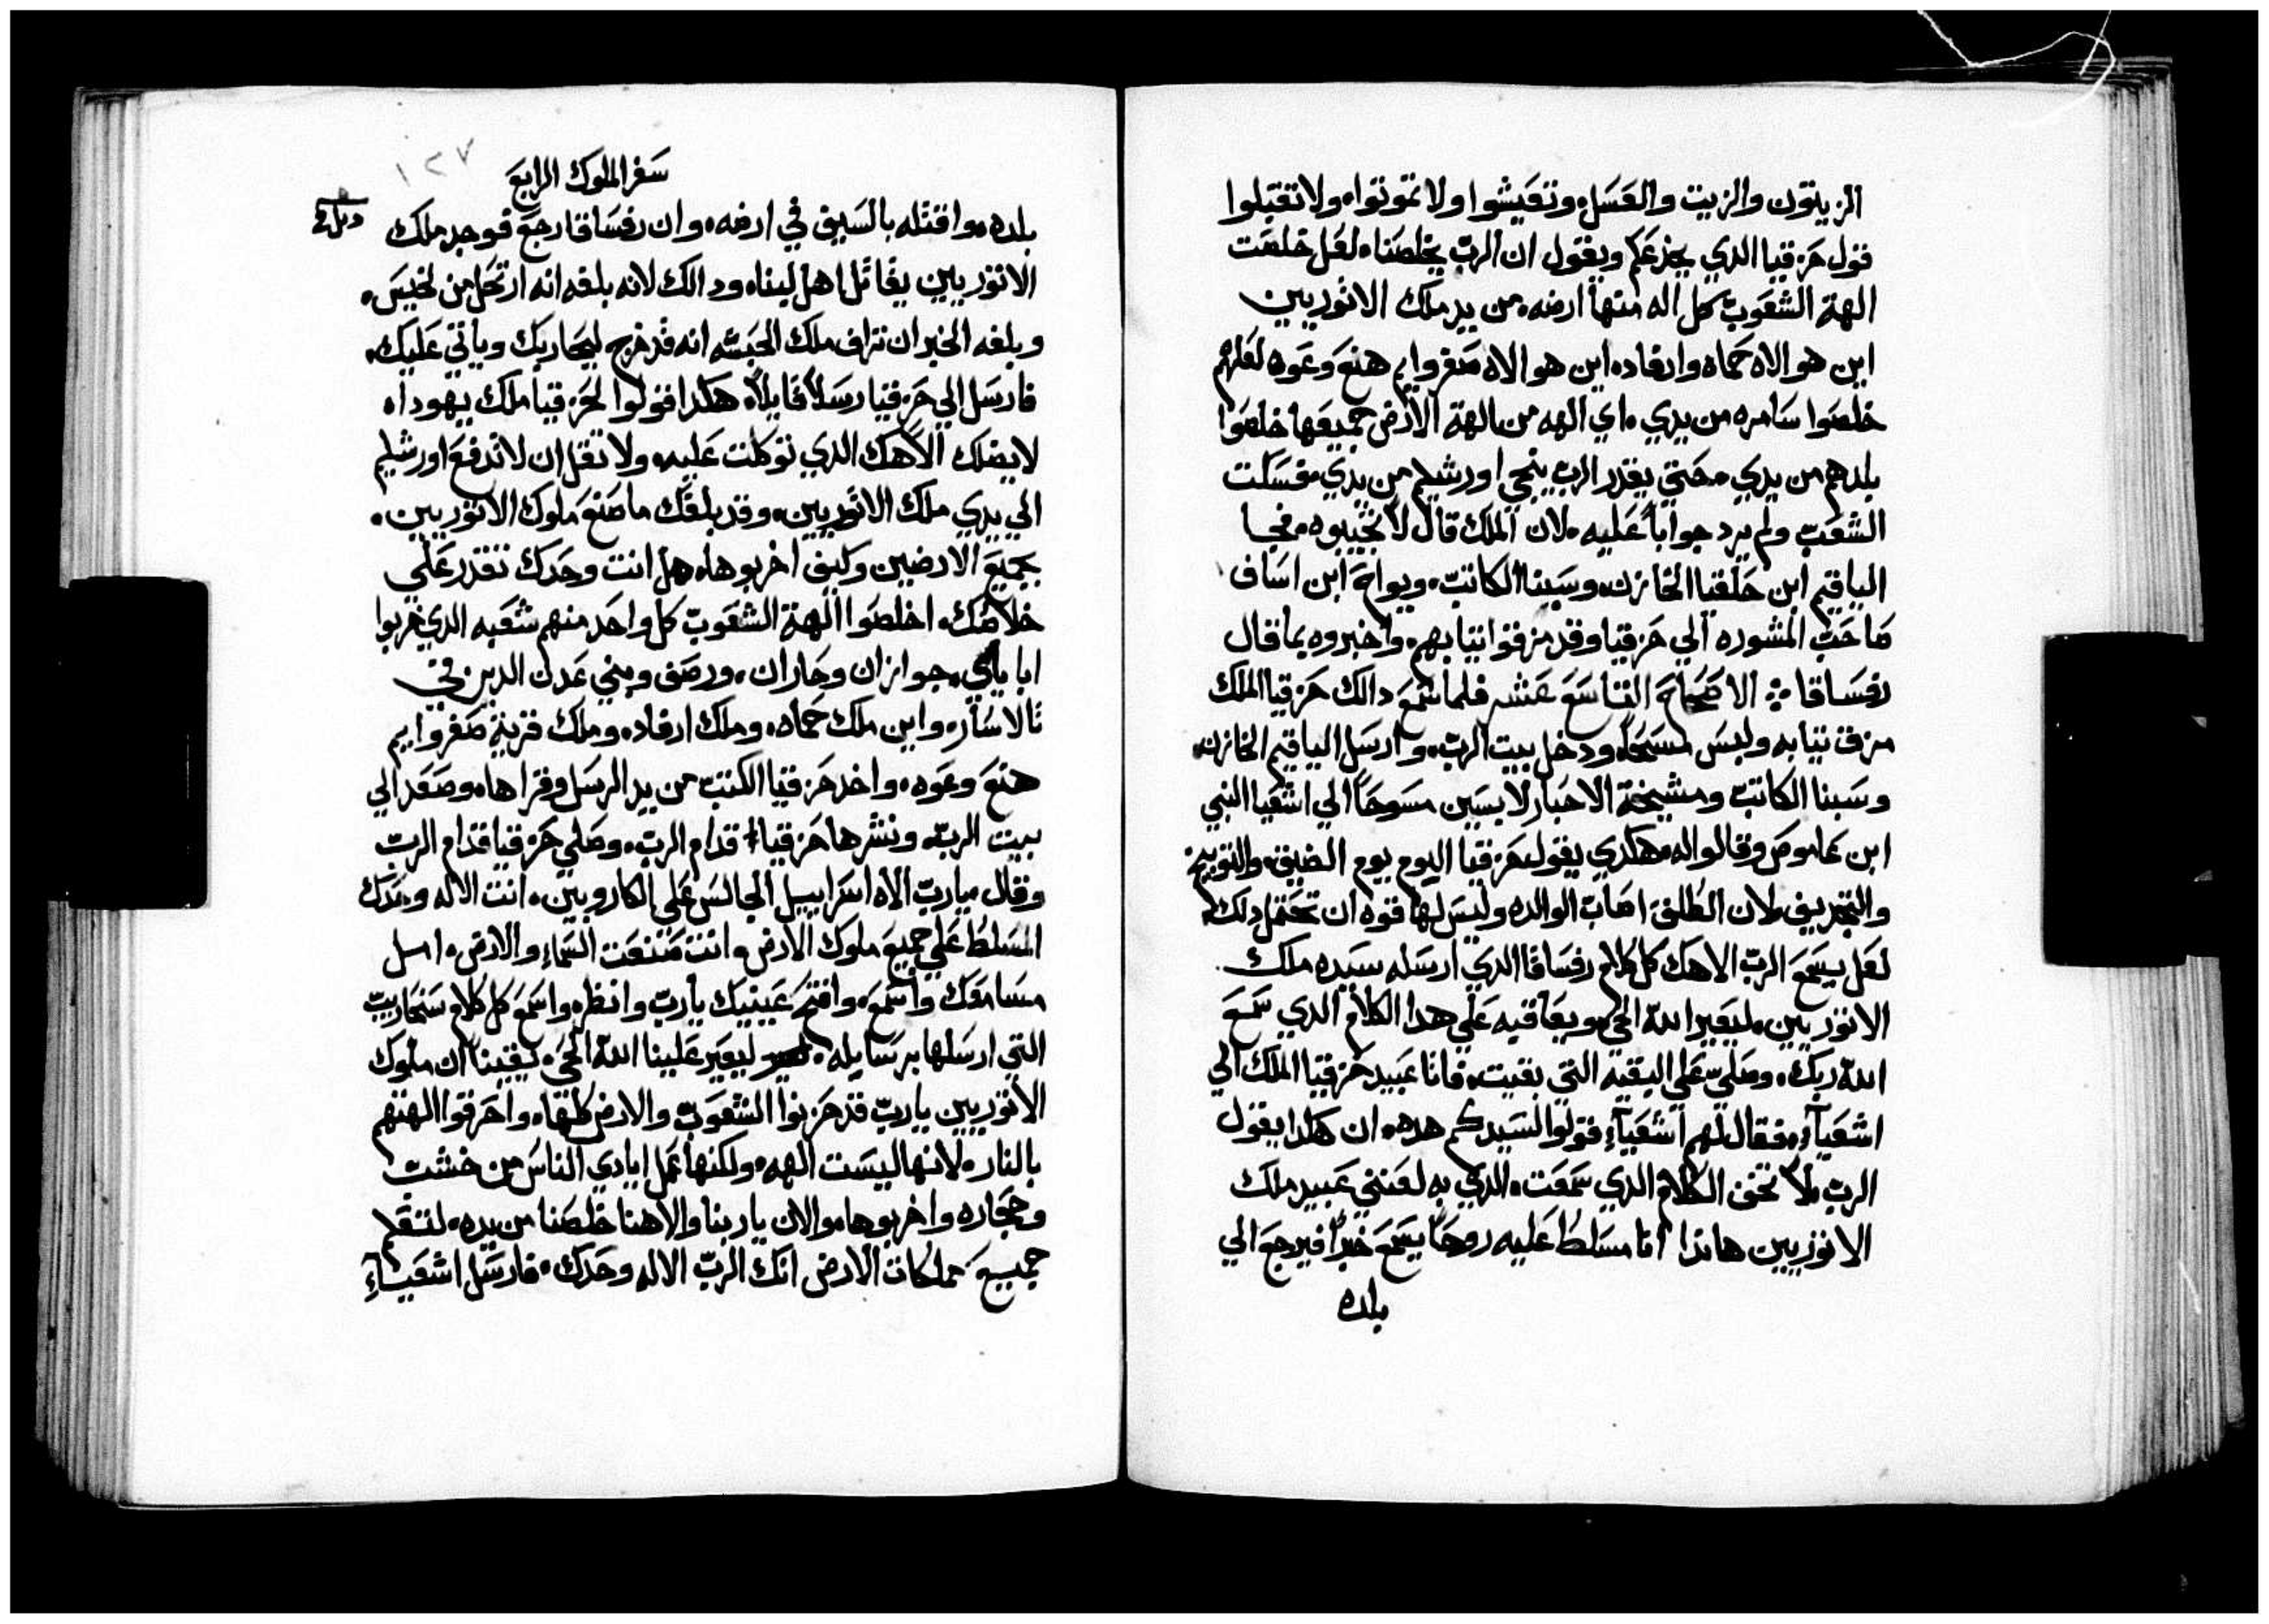 الزيتون والزيت والعسل وتعيشوا ولا تموتوا، ولا تقبلوا
قول حزقيا الدي يخدعكم ويقول ان الرب يخلصنا، لعل خلصت
الهة الشعوب كل اله منها ارضه، من يد ملك الاثوريين
اين هو الاه حماه وارفاد، اين هو الاه صفروايم هنع وعوه لعلهم
خلصوا سامره من يدي، اي الهه من الهة الارض جميعها خلصوا
بلدهم من يدي، حتي يقدر الرب ينجي اورشليم من يدي، فسكت
الشعب ولم يرد جواباً عليه، لان الملك قال لا تجيبوه، فجا
الياقيم ابن حلقيا الخازن، وسبنا الكاتب، ويواح ابن اساف
صاحب المشوره الي حزقيا وقد مزقوا ثيابهم، واخبروه بما قال
رفساقا ؞ الاصحاح التاسع عشر فلما سمع دالك حزقيا الملك
مزق ثيابه ولبس مسحاً، ودخل بيت الرب، وارسل الياقيم الخازن،
وسبنا الكاتب ومشيخة الاحبار لابسين مسوحاً الي اشعيا النبي
ابن عاموص وقالوا له، هكدي يقول حزقيا اليوم يوم الضيق، والتوبيخ
والتجديف، لان الطلق اصاب الوالده وليس لها قوه ان تحتمل دلك،
لعل يسمع الرب الاهك كل كلام رفساقا الدي ارسله سيده ملك
الاثوريين، ليعير الله الحي، ويعاقبه علي هدا الكلام الدي سمع
الله ربك، وصلي علي البقيه التي بقيت، فاتا عبيد حزقيا الملك الي
اشعيآء، فقال لهم اشعيآء قولوا لسيدكم هده، ان هكدا يقول
الرب، لا تخف الكلام الدي سمعت، الدي به لعنني عبيد ملك
الاثوريين هاندا انا مسلط عليه روحاً يسمع خبراً فيرجع الي
بلده
سفر الملوك الرابع
١٢٧
بلده، واقتله بالسيف في ارضه، وان رفساقا رجع فوجد ملك
الاثوريين يقاتل اهل لبنا، ودالك لانه بلغه انه ارتحل من لخيس،
وبلغه الخبر ان تراق ملك الحبشه انه قد خرج ليحاربك وياتي عليك،
فارسل الي حزقيا رسلاً قايلاً، هكدا قولوا لحزقيا ملك يهودا،
لا يضلك الاهك الدي توكلت عليه، ولا تقل ان لا تدفع اورشليم
الي يدي ملك الاثوريين، وقد بلغك ما صنع ملوك الاثوريين،
بجميع الارضيين وكيف اخربوها، هل انت وحدك تقدر علي
خلاصك، اخلصوا الهة الشعوب كل واحد منهم شعبه الدي خربوا
اباياي، جوازان وحاران، ورصف وبني عدن الدين في
تالاسار، واين ملك حماه، وملك ارفاد، وملك قرية صفروايم
هنع وعوه، واخد حزقيا الكتب من يد الرسل وقراها، وصعد الي
بيت الرب، ونشرها حزقيا قدام الرب، وصلي حزقيا قدام الرب
وقال، يارب الاه اسراييل الجالس علي الكاروبين، انت الاله وحدك
المسلط علي جميع ملوك الارض، وانت صنعت السماء والارض، امل
مسامعك واسمع، وافتح عينيك يارب وانظر، واسمع كل كلام سنحاريب
التي ارسلها برسايله، ليعير علينا الله الحي، يقيناً ان ملوك
الاثوريين يارب قد خربوا الشعوب والارض كلها، واحرقوا الهتهم
بالنار، لانها ليست الهه، ولكنها عمل ايادي الناس من خشب
وحجاره واخربوها، والان ياربنا والاهنا خلصنا من يده، لتعلم
جميع مملكات الارض انك الرب الاله وحدك، فارسل اشعيآء